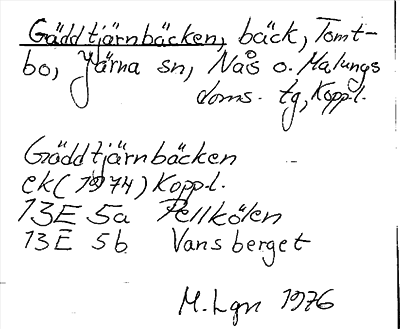 Gäddtjärnbäcken, bäck, Tomt-
bo, Järna sn, Nås o. Malungs
doms. tg, Koppl.
Gäddtjärnbäcken
ek (1974) Koppl.
13E 5a Pellkölen
13E 5b Vansberget
M. Lgn 1976